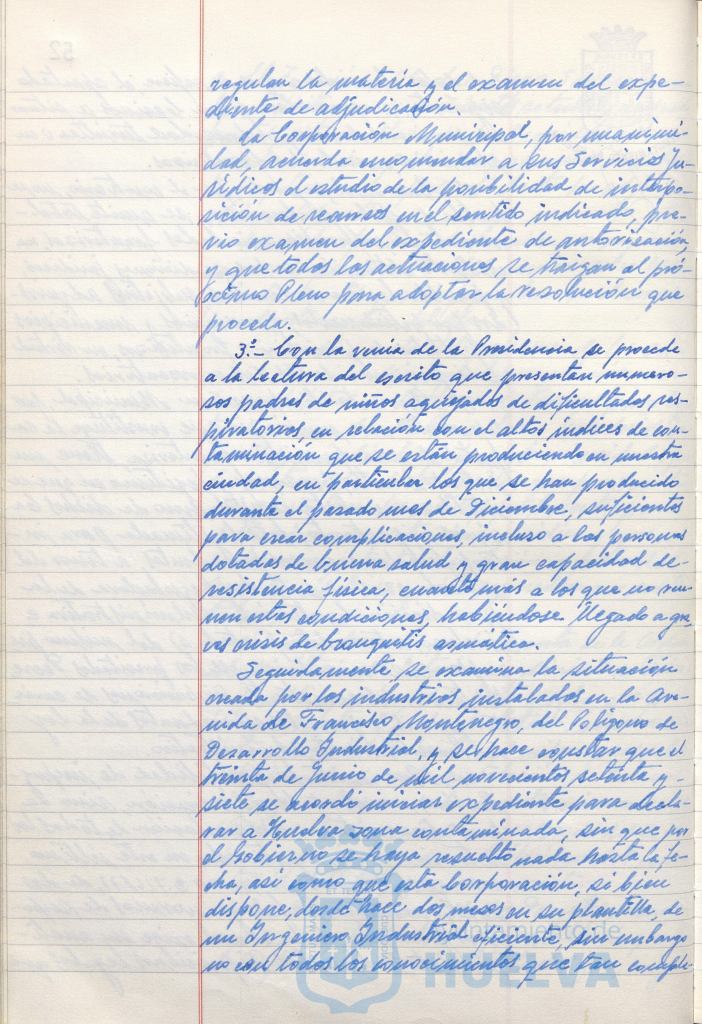 regulan la materia y el examen del expe-
diente de adjudicación.
La Corporación Municipal, por unanimi-
dad, acuerda encomendar a sus Servicios Ju-
rídicos el estudio de la posibilidad de interpo-
sición de recursos en el sentido indicado, pre-
vio examen del expediente de autorización,
y que todas las actuaciones se traigan al pró-
ximo Pleno para adoptar la resolución que
proceda.
3º.- Con la venia de la Presidencia se procede
a la lectura del escrito que presentan numero-
sos padres de niños aquejados de dificultades res-
piratorias, en relación con el altos índices de con-
taminación que se están produciendo en nuestra
ciudad, en particular los que se han producido
durante el pasado mes de Diciembre, suficientes
para crear complicaciones, incluso a las personas
dotadas de buena salud y gran capacidad de
resistencia física, cuanto más a los que no reu-
nen estas condiciones, habiéndose llegado a gra-
ves crisis de bronquitis asmática.
Seguidamente, se examina la situación
creada por las industrias instaladas en la Ave-
nida de Francisco Montenegro, del Polígono de
Desarrollo Industrial, y se hace constar que el
treinta de Junio de mil novecientos setenta y
siete se acordó iniciar expediente para decla-
rar a Huelva zona contaminada, sin que por
el Gobierno se haya resuelto nada hasta la fe-
cha, así como que esta Corporación, si bien
dispone, desde hace dos meses en su plantilla, de
un Ingeniero Industrial eficiente, sin embargo
no con todos los conocimientos que tan comple-
Ayuntamiento de
HUELVA
52